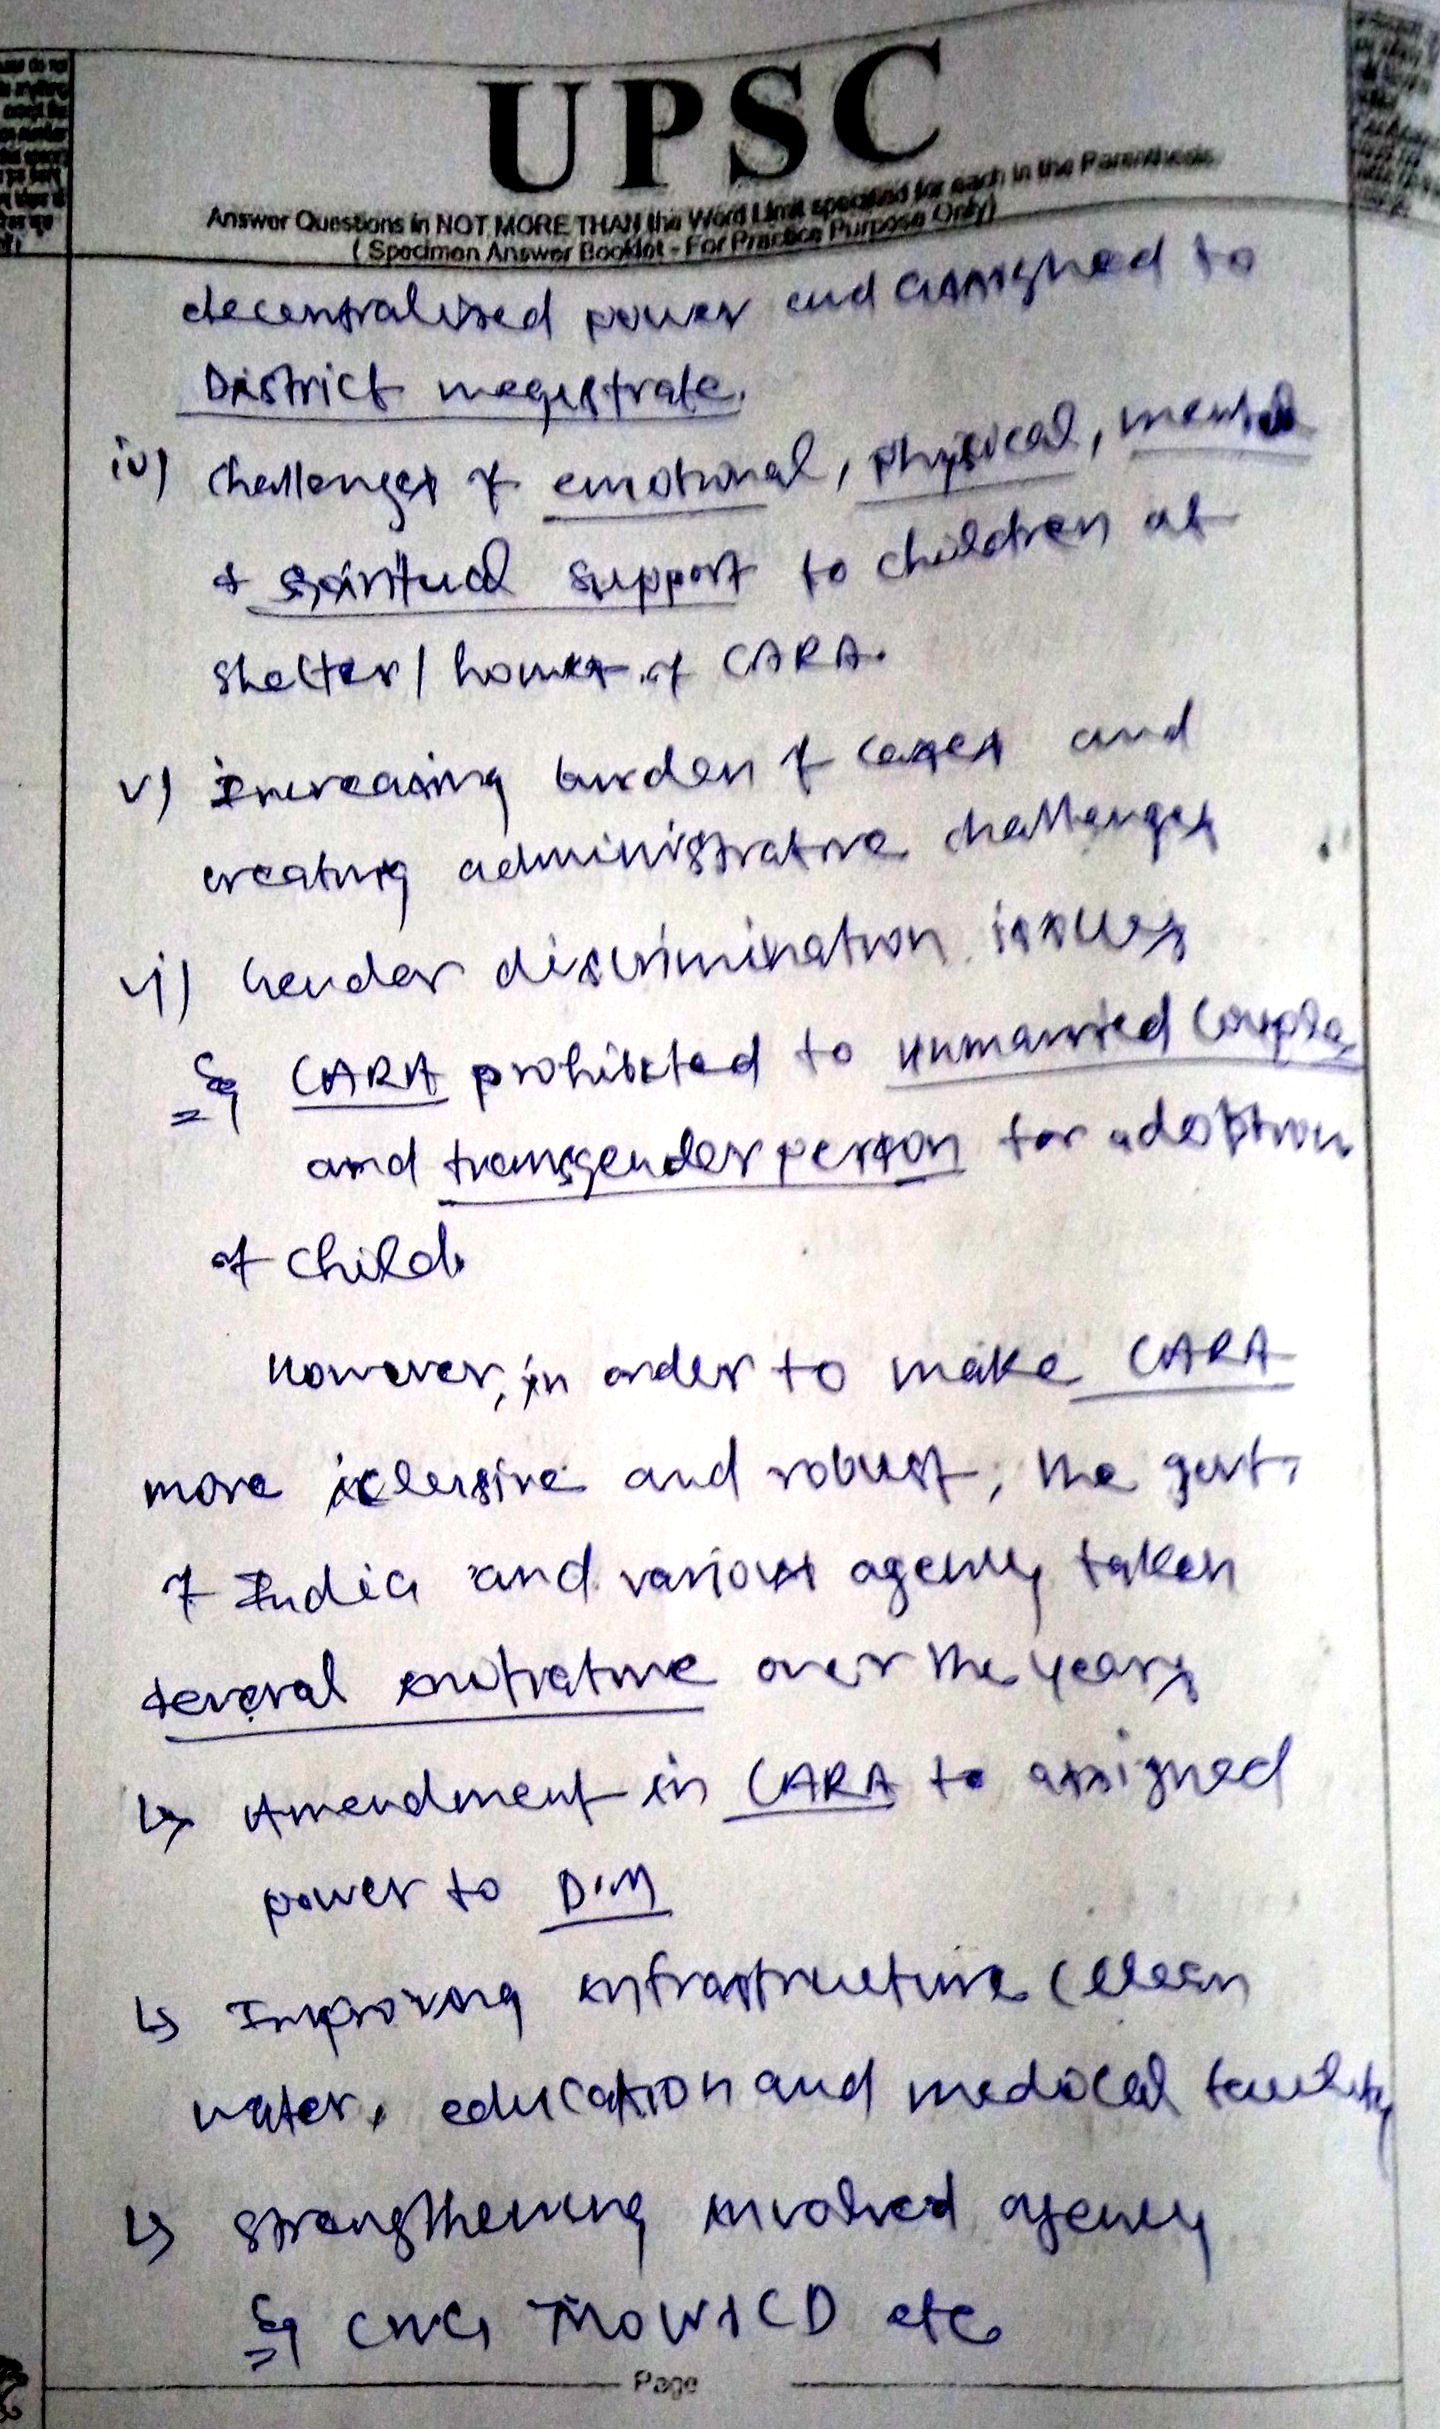 UPSC
Answer Questions in NOT MORE THAN the Word Limit specified for each in the Parenthesis
( Specimen Answer Booklet - For Practice Purpose Only)
decentralised power and assigned to
District megistrate.
iv) challenges of emotional, physical, mental
& spiritual support to children at
shelter/ homes of CARA.
v) Increasing burden of cases and
creating administrative challenges
vi) Gender discrimination issues
Eg CARA prohibited to unmarried couple
and transgender person for adoption
of child.
However, in order to make CARA
more iclusive and robust, the govt.
of India and various agency taken
several initiative over the years
↳ Amendment in CARA to assigned
power to D.M
↳ Improving infrastructure (clean
water, education and medical facility
↳ strengthening involved agency
Eg CWC, MOW&CD etc
Page